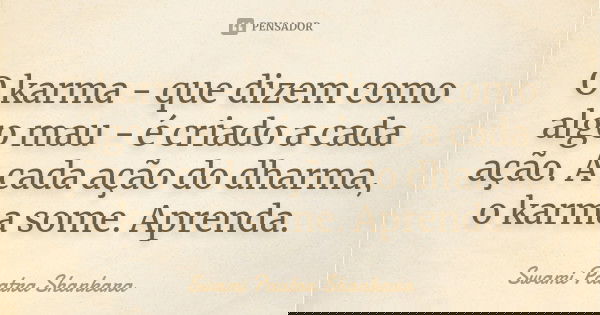 PENSADOR
O karma - que dizem como
algo mau - é criado a cada
ação. A cada ação do dharma,
o karma some. Aprenda.
Swami Paatra Shankara